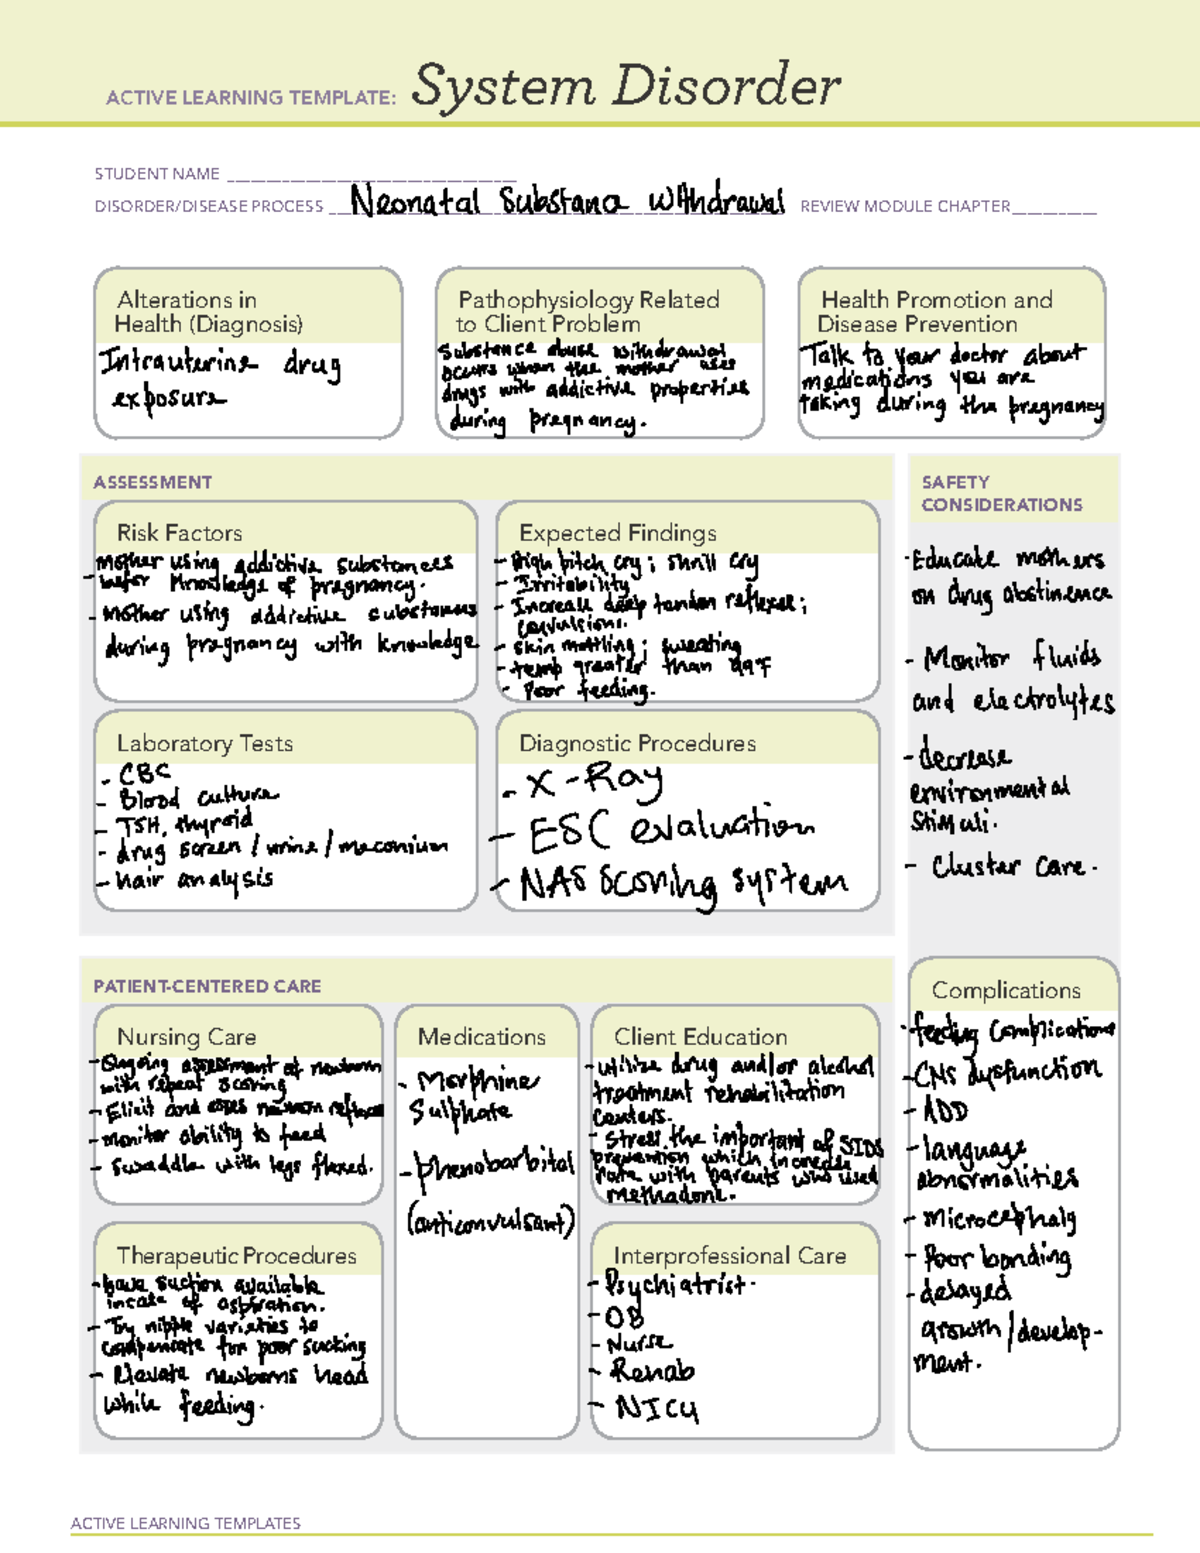 ACTIVE LEARNING TEMPLATE: System Disorder
STUDENT NAME
DISORDER/DISEASE PROCESS Neonatal Substana Withdrawal REVIEW MODULE CHAPTER
Alterations in
Health (Diagnosis)
Intrauterine drug
exposure
Pathophysiology Related
to Client Problem
Substance abuse withdrawal
occurs when the mother uses
drugs with addictive properties
during pregnancy.
Health Promotion and
Disease Prevention
Talk to your doctor about
medications you are
taking during the pregnancy
ASSESSMENT
Risk Factors
Mother using addictive substances
- before knowledge of pregnancy.
- Mother using addictive substances
during pregnancy with knowledge
Expected Findings
- High pitch cry; shrill cry
- Irritability
- Increase deep tendon reflexes;
convulsions.
- Skin mottling; sweating
- temp greater than 99°F
- Poor feeding.
Laboratory Tests
- CBC
- Blood culture
- TSH, thyroid
- drug screen / urine / meconium
- hair analysis
Diagnostic Procedures
- X-Ray
- ESC evaluation
- NAS Scoring system
SAFETY
CONSIDERATIONS
- Educate mothers
on drug abstinence
- Monitor fluids
and electrolytes
- decrease
environmental
Stimuli.
- Cluster care.
PATIENT-CENTERED CARE
Nursing Care
- Ongoing assessment of newborn
with repeat scoring
- Elicit and newborn reflexes
- monitor ability to feed
- Swaddle with legs flexed.
Medications
- Morphine
Sulphate
- phenobarbital
(anticonvulsant)
Client Education
- utilize drug and/or alcohol
treatment rehabilitation
centers.
- Stress the important of SIDS
prevention which increase
rate with parents who used
methadone.
Therapeutic Procedures
- have suction available
incase of aspiration.
- Try nipple varieties to
compensate for poor sucking
- Elevate newborns head
while feeding.
Interprofessional Care
- Psychiatrist.
- OB
- Nurse
- Rehab
- NICU
Complications
- feeding complications
- CNS dysfunction
- ADD
- language
abnormalities
- microcephaly
- Poor bonding
- delayed
growth/develop-
ment.
ACTIVE LEARNING TEMPLATES